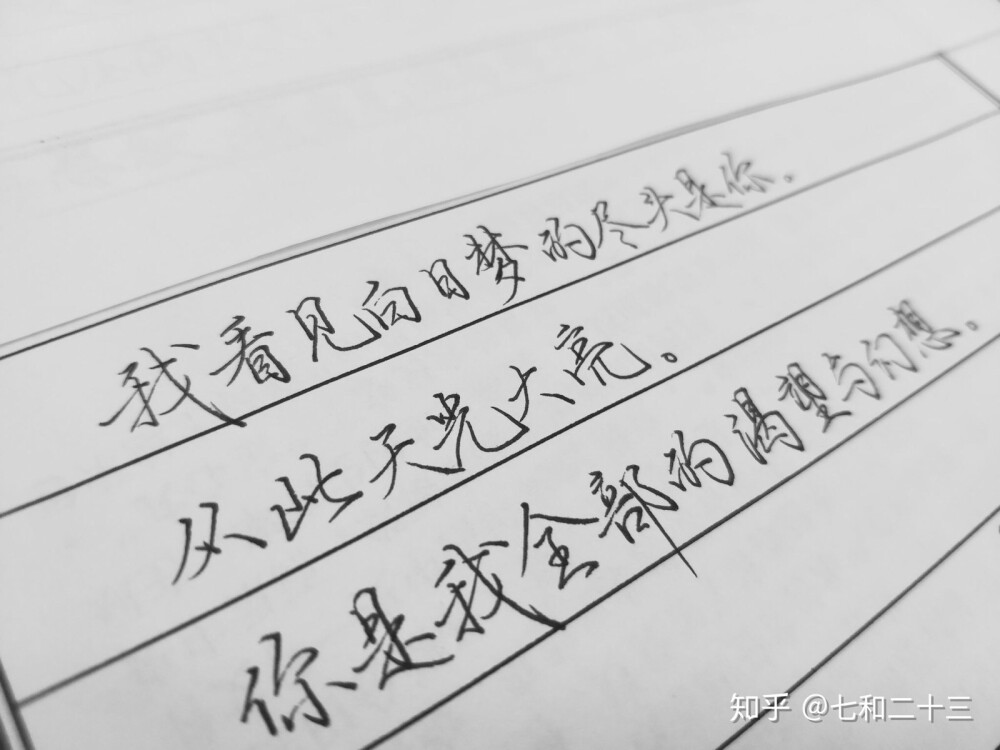 我看见向日梦的尽头是你。
从此天光大亮。
你是我全部的渴望与幻想。
知乎 @七和二十三